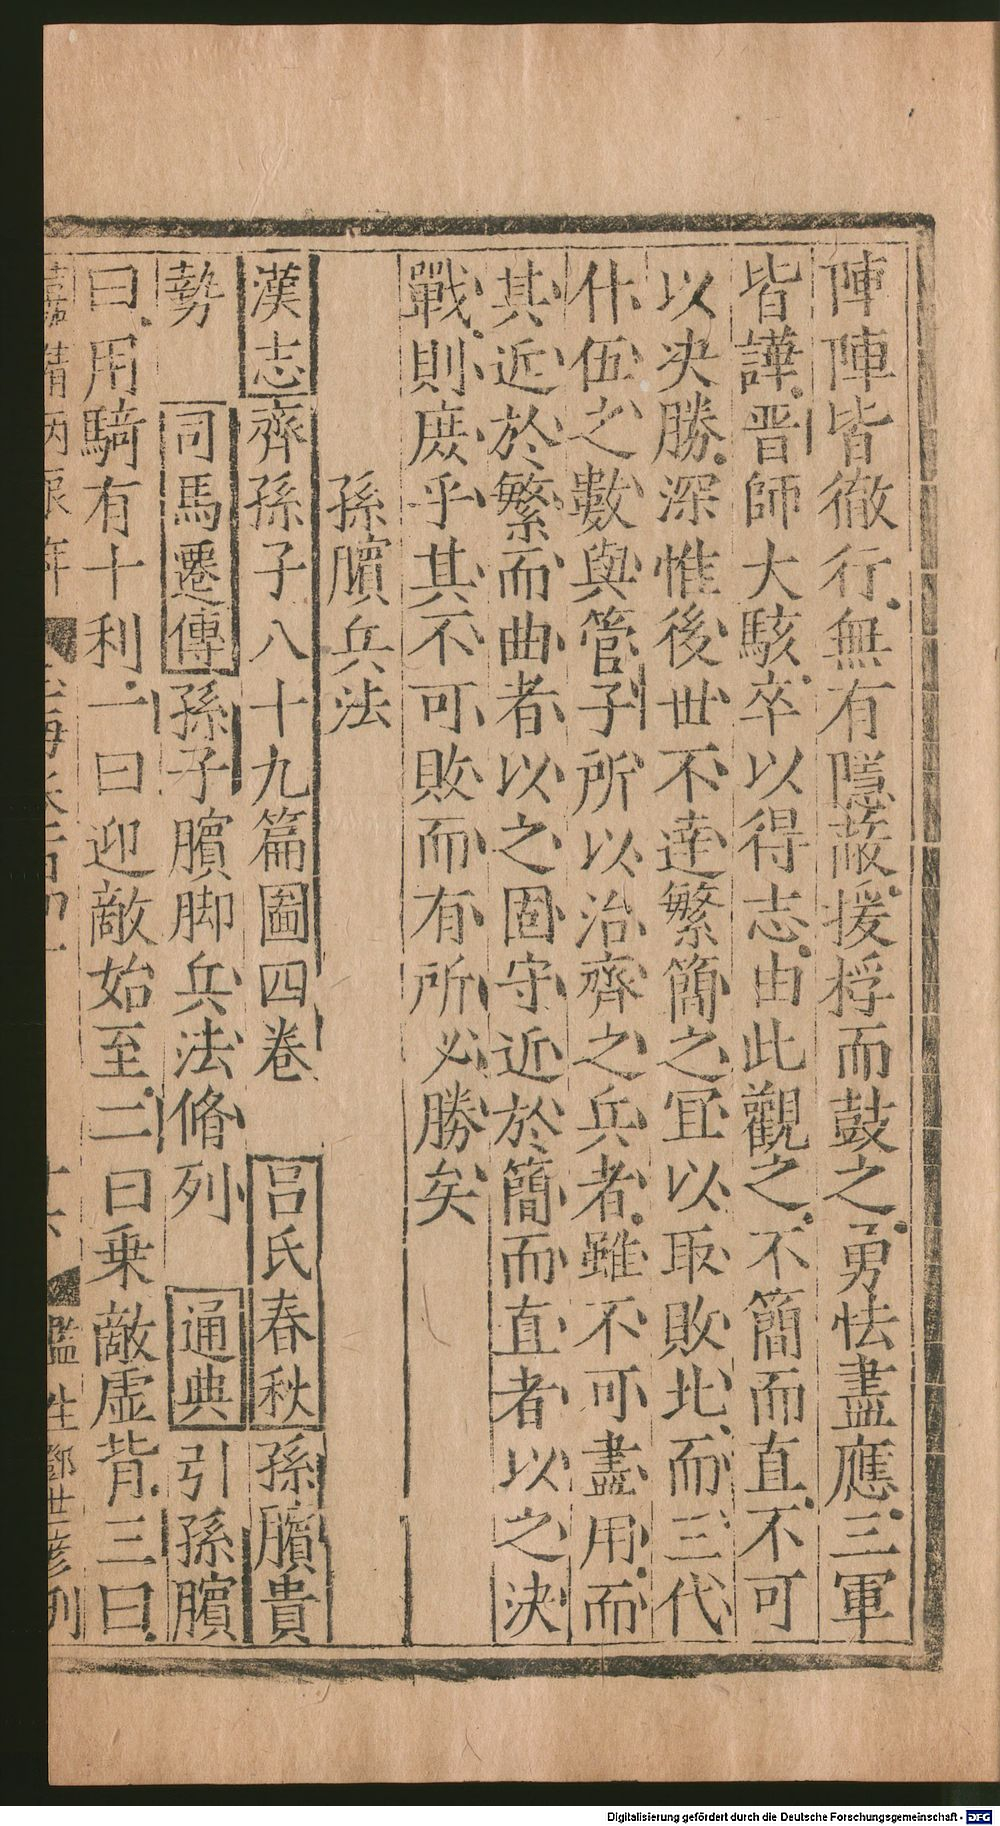 陣陣皆徹行無有隱蔽援桴而鼓之勇怯盡應三軍
皆譁晋師大駭卒以得志由此觀之不簡而直不可
以决勝深惟後世不達繁簡之宜以取敗北而三代
什伍之數與管子所以治齊之兵者雖不可盡用而
其近於繁而曲者以之固守近於簡而直者以之決
戰則庻乎其不可敗而有所必勝矣
孫臏兵法
漢志齊孫子八十九篇圖四卷 吕氏春秋孫臏貴
勢 司馬遷傳孫子臏脚兵法脩列 通典引孫臏
曰用騎有十利一曰迎敵始至二曰乗敵虛背三曰
年 監生鄧世彦刋
Digitalisierung gefördert durch die Deutsche Forschungsgemeinschaft - DFG